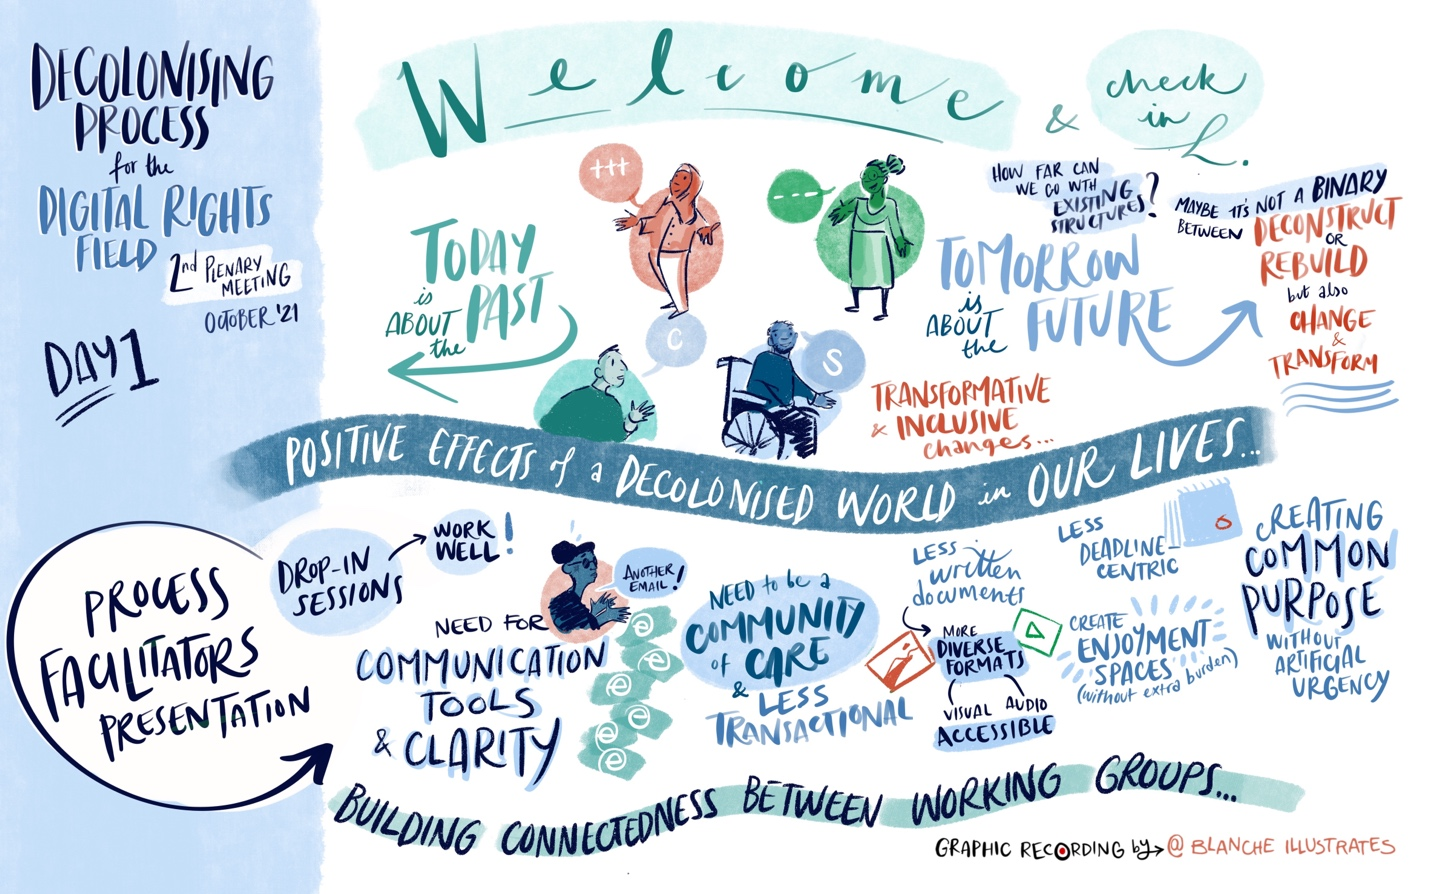 DECOLONISING
PROCESS
for the
DIGITAL RIGHTS
FIELD
2nd PLENARY
MEETING
OCTOBER '21
DAY 1
Welcome
& check
in
TODAY
is
ABOUT
the
PAST
+++
C
S
HOW FAR CAN
WE GO WITH
EXISTING
STRUCTURES?
TOMORROW
is
ABOUT
the
FUTURE
MAYBE IT'S NOT A BINARY
BETWEEN DECONSTRUCT
OR
REBUILD
but also
CHANGE
&
TRANSFORM
TRANSFORMATIVE
& INCLUSIVE
changes...
POSITIVE EFFECTS of a DECOLONISED WORLD in OUR LIVES...
PROCESS
FACILITATORS
PRESENTATION
DROP-IN
SESSIONS
WORK
WELL!
NEED FOR
COMMUNICATION
TOOLS
& CLARITY
ANOTHER
EMAIL!
NEED to be a
COMMUNITY
of CARE
& LESS
TRANSACTIONAL
LESS
written
documents
MORE
DIVERSE
FORMATS
VISUAL AUDIO
ACCESSIBLE
LESS
DEADLINE-
CENTRIC
CREATE
ENJOYMENT
SPACES
(without extra burden)
CREATING
COMMON
PURPOSE
WITHOUT
ARTIFICIAL
URGENCY
BUILDING CONNECTEDNESS BETWEEN WORKING GROUPS...
GRAPHIC RECORDING by → @ BLANCHE ILLUSTRATES